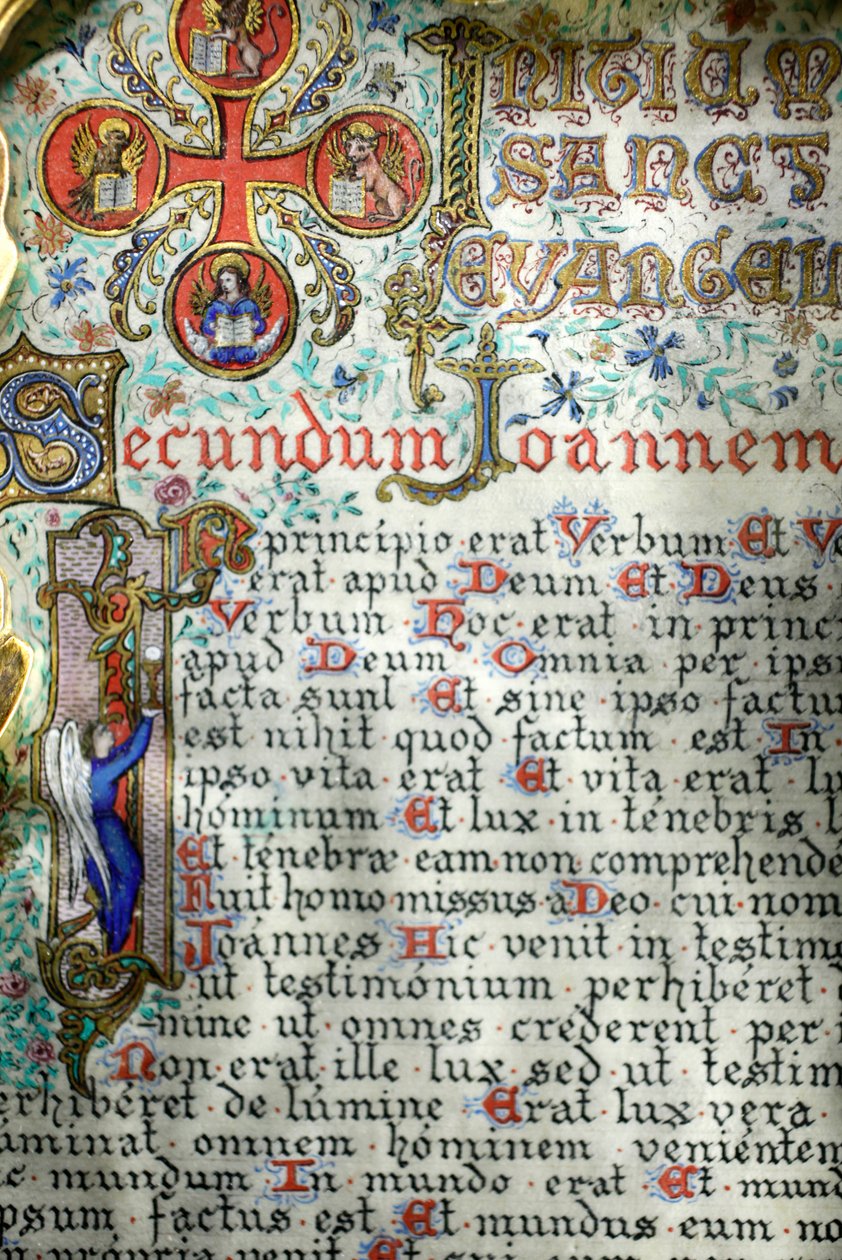 INITIUM
SANCT
EVANGEL
Secundum Joannem
IN principio erat Verbum Et Ve
erat apud Deum Et Deus
Verbum Hoc erat in princi
apud Deum Omnia per ips
facta sunl Et sine ipso factu
est nihil quod factum est In
ipso vita erat Et vita erat lu
hóminum Et lux in ténebris l
Et ténebræ eam non comprehendé
Nuit homo missus a Deo cui nom
Joánnes Hic venit in testimo
ut testimónium perhibéret
mine ut omnes créderent per i
Non erat ille lux sed ut testim
erhibéret de lúmine Erat lux vera
uminat omnem hóminem veniéntem
c mundum In mundo erat Et mund
psum factus est Et mundus eum no
própria venit Et sui eum